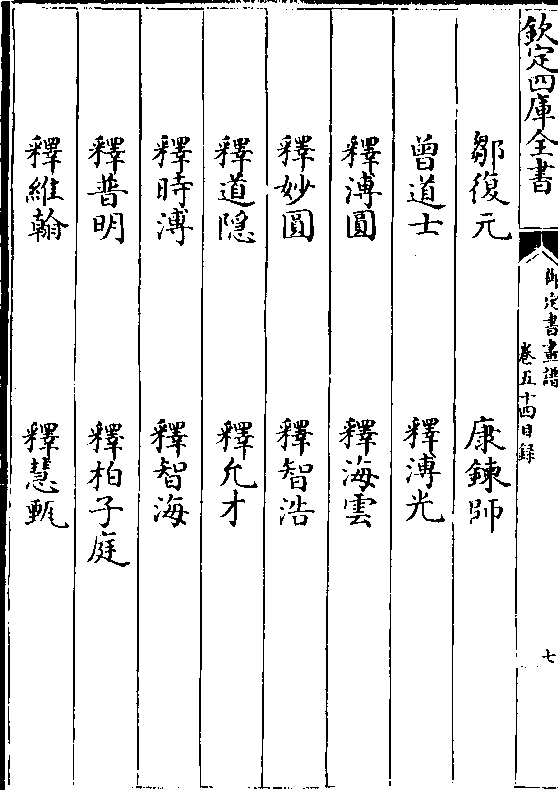 欽定四庫全書
御定書畫譜
卷五十四目録
七
鄒復元 康錬師
曾道士 釋溥光
釋溥圓 釋海雲
釋妙圓 釋智浩
釋道隠 釋允才
釋時溥 釋智海
釋普明 釋柏子庭
釋維翰 釋慧甄